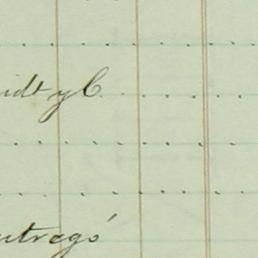 idt y C
utregó